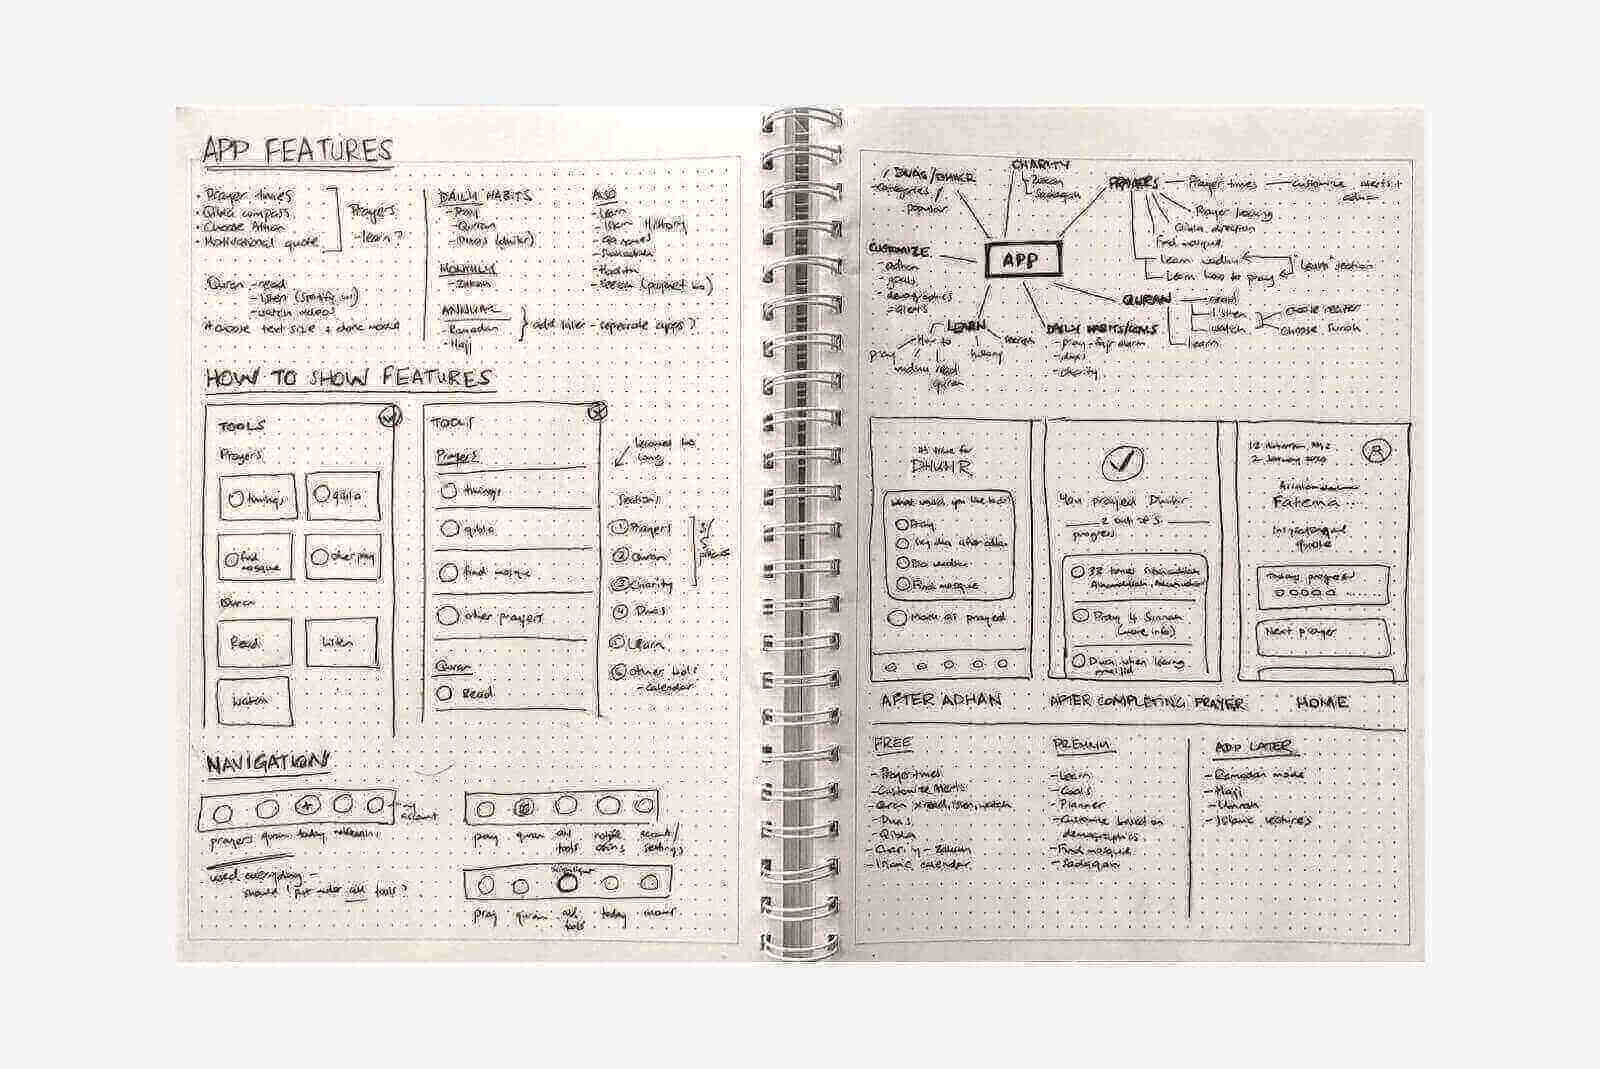 APP FEATURES
• Prayer times
• Qibla compass
• Choose Athan
• Motivational quote
Prayers
- learn?
Quran - read
- listen (spotify
- watch videos
choose text size + dark mode
DAILY HABITS
- Pray
- Quran
- Duas (dhikr)
MONTHLY
- Zakah
ANNUAL
- Ramadan
- Hajj
add later - separate apps?
ALSO
- Learn
- Islam History
- 99 names
- Shahadah
- Hadith
- Seerah (prophet bio)
HOW TO SHOW FEATURES
TOOLS
Prayers
timings
qibla
find mosque
other pray
Quran
Read
Listen
Watch
TOOLS
Prayers
timings
qibla
find mosque
other prayers
Quran
Read
becomes too
long
Sections
① Prayers
② Quran
③ Charity
④ Duas
⑤ Learn
⑥ Other tools
- calendar
NAVIGATION
account
prayers quran today
used everyday -
should I put under all tools?
pray quran all tools account/settings
pray quran all tools today
DUAS/DHIKR
- categories
popular
CHARITY
- Zakah
- Sadaqah
PRAYERS
Prayer times
customize alerts +
adhan
Prayer tracking
Qibla direction
Find mosque
Learn wudhu
Learn how to pray
"Learn" section
CUSTOMIZE
- adhan
- goals
- demographics
- alerts
APP
QURAN
read
listen
watch
learn
choose reciter
choose surah
LEARN
How to
pray
wudhu
read
quran
history
DAILY HABITS/GOALS
- pray - fajr alarm
- duas
- charity
It's time for
DHUHR
What would you like to do?
Pray
Say dua after adhan
Do wudhu
Find mosque
Mark as prayed
AFTER ADHAN
You prayed Dhuhr
2 out of 5
progress
Pray 4 Sunnah
(more info)
Dua when leaving
masjid
AFTER COMPLETING PRAYER
2 January 2020
Fatema
Inspirational
quote
Today progress
Next prayer
HOME
FREE
- Prayer times
- Customize Alerts
- Quran read, listen, watch
- Duas
- Qibla
- Charity - Zakah
- Islamic calendar
PREMIUM
- Learn
- Goals
- Planner
- Customize based on
demographics
- Find mosque
- Sadaqah
ADD LATER
- Ramadan mode
- Hajj
- Umrah
- Islamic lectures